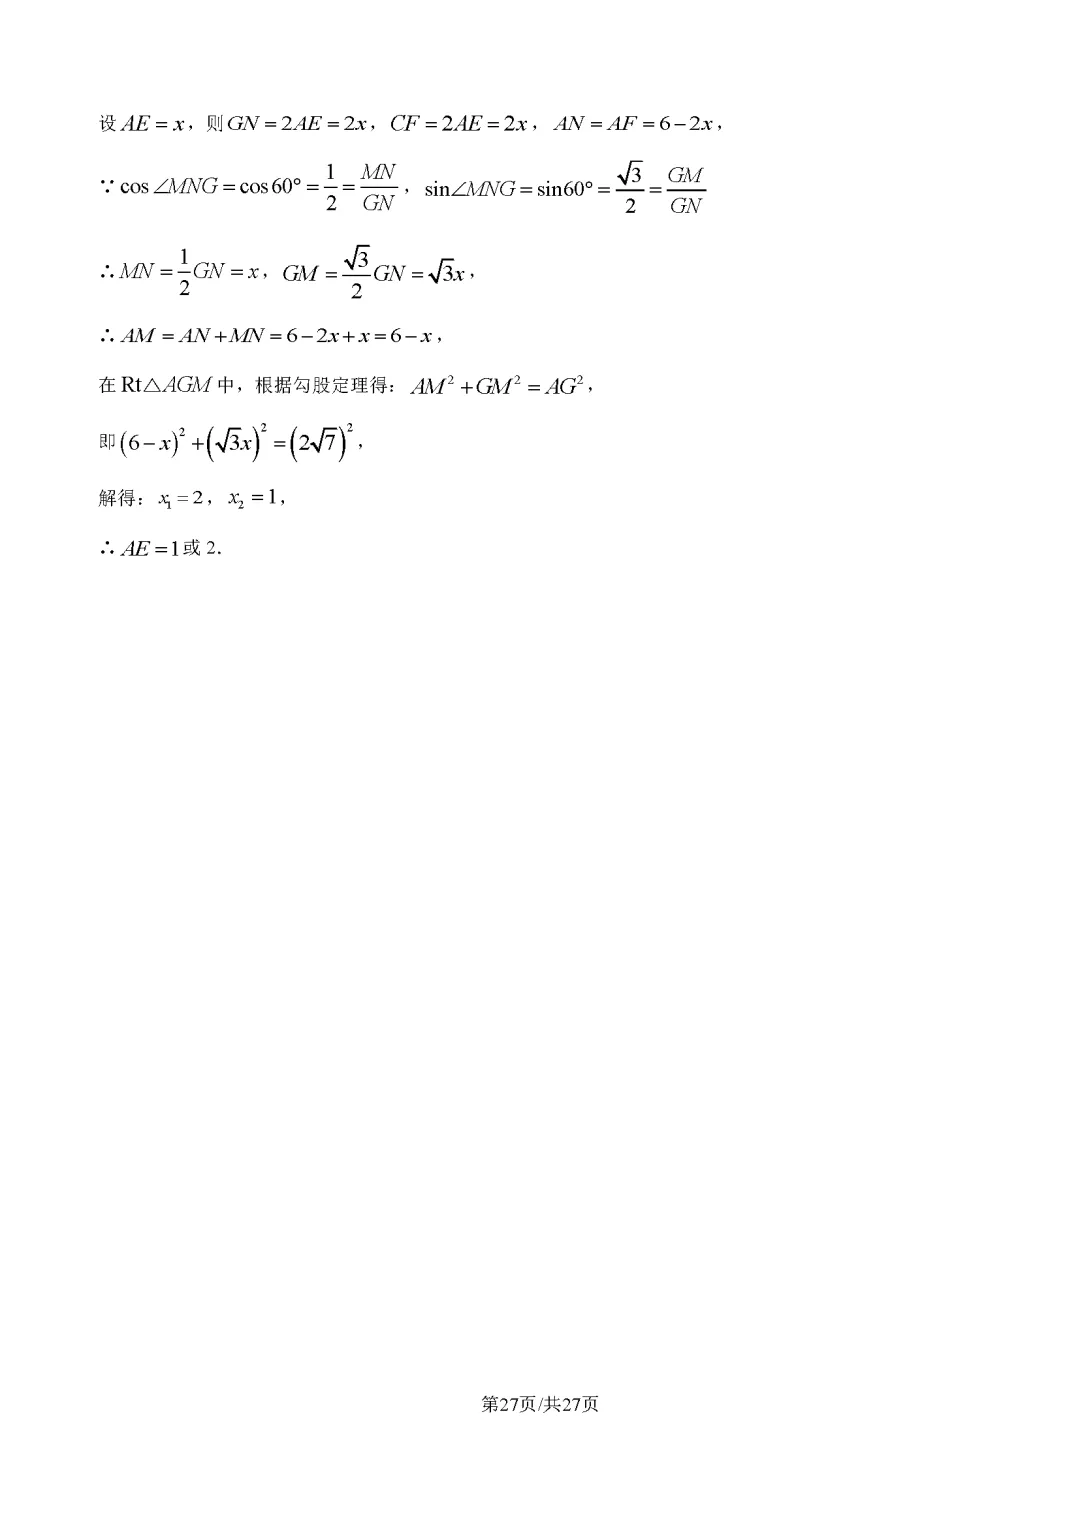 设 AE = x，则 GN = 2AE = 2x，CF = 2AE = 2x，AN = AF = 6 − 2x，
∵ cos∠MNG = cos60° = 1/2 = MN/GN，sin∠MNG = sin60° = √3/2 = GM/GN
∴ MN = 1/2 GN = x，GM = √3/2 GN = √3x，
∴ AM = AN + MN = 6 − 2x + x = 6 − x，
在 Rt△AGM 中，根据勾股定理得：AM² + GM² = AG²，
即 (6 − x)² + (√3x)² = (2√7)²，
解得：x₁ = 2，x₂ = 1，
∴ AE = 1 或 2．
第27页/共27页